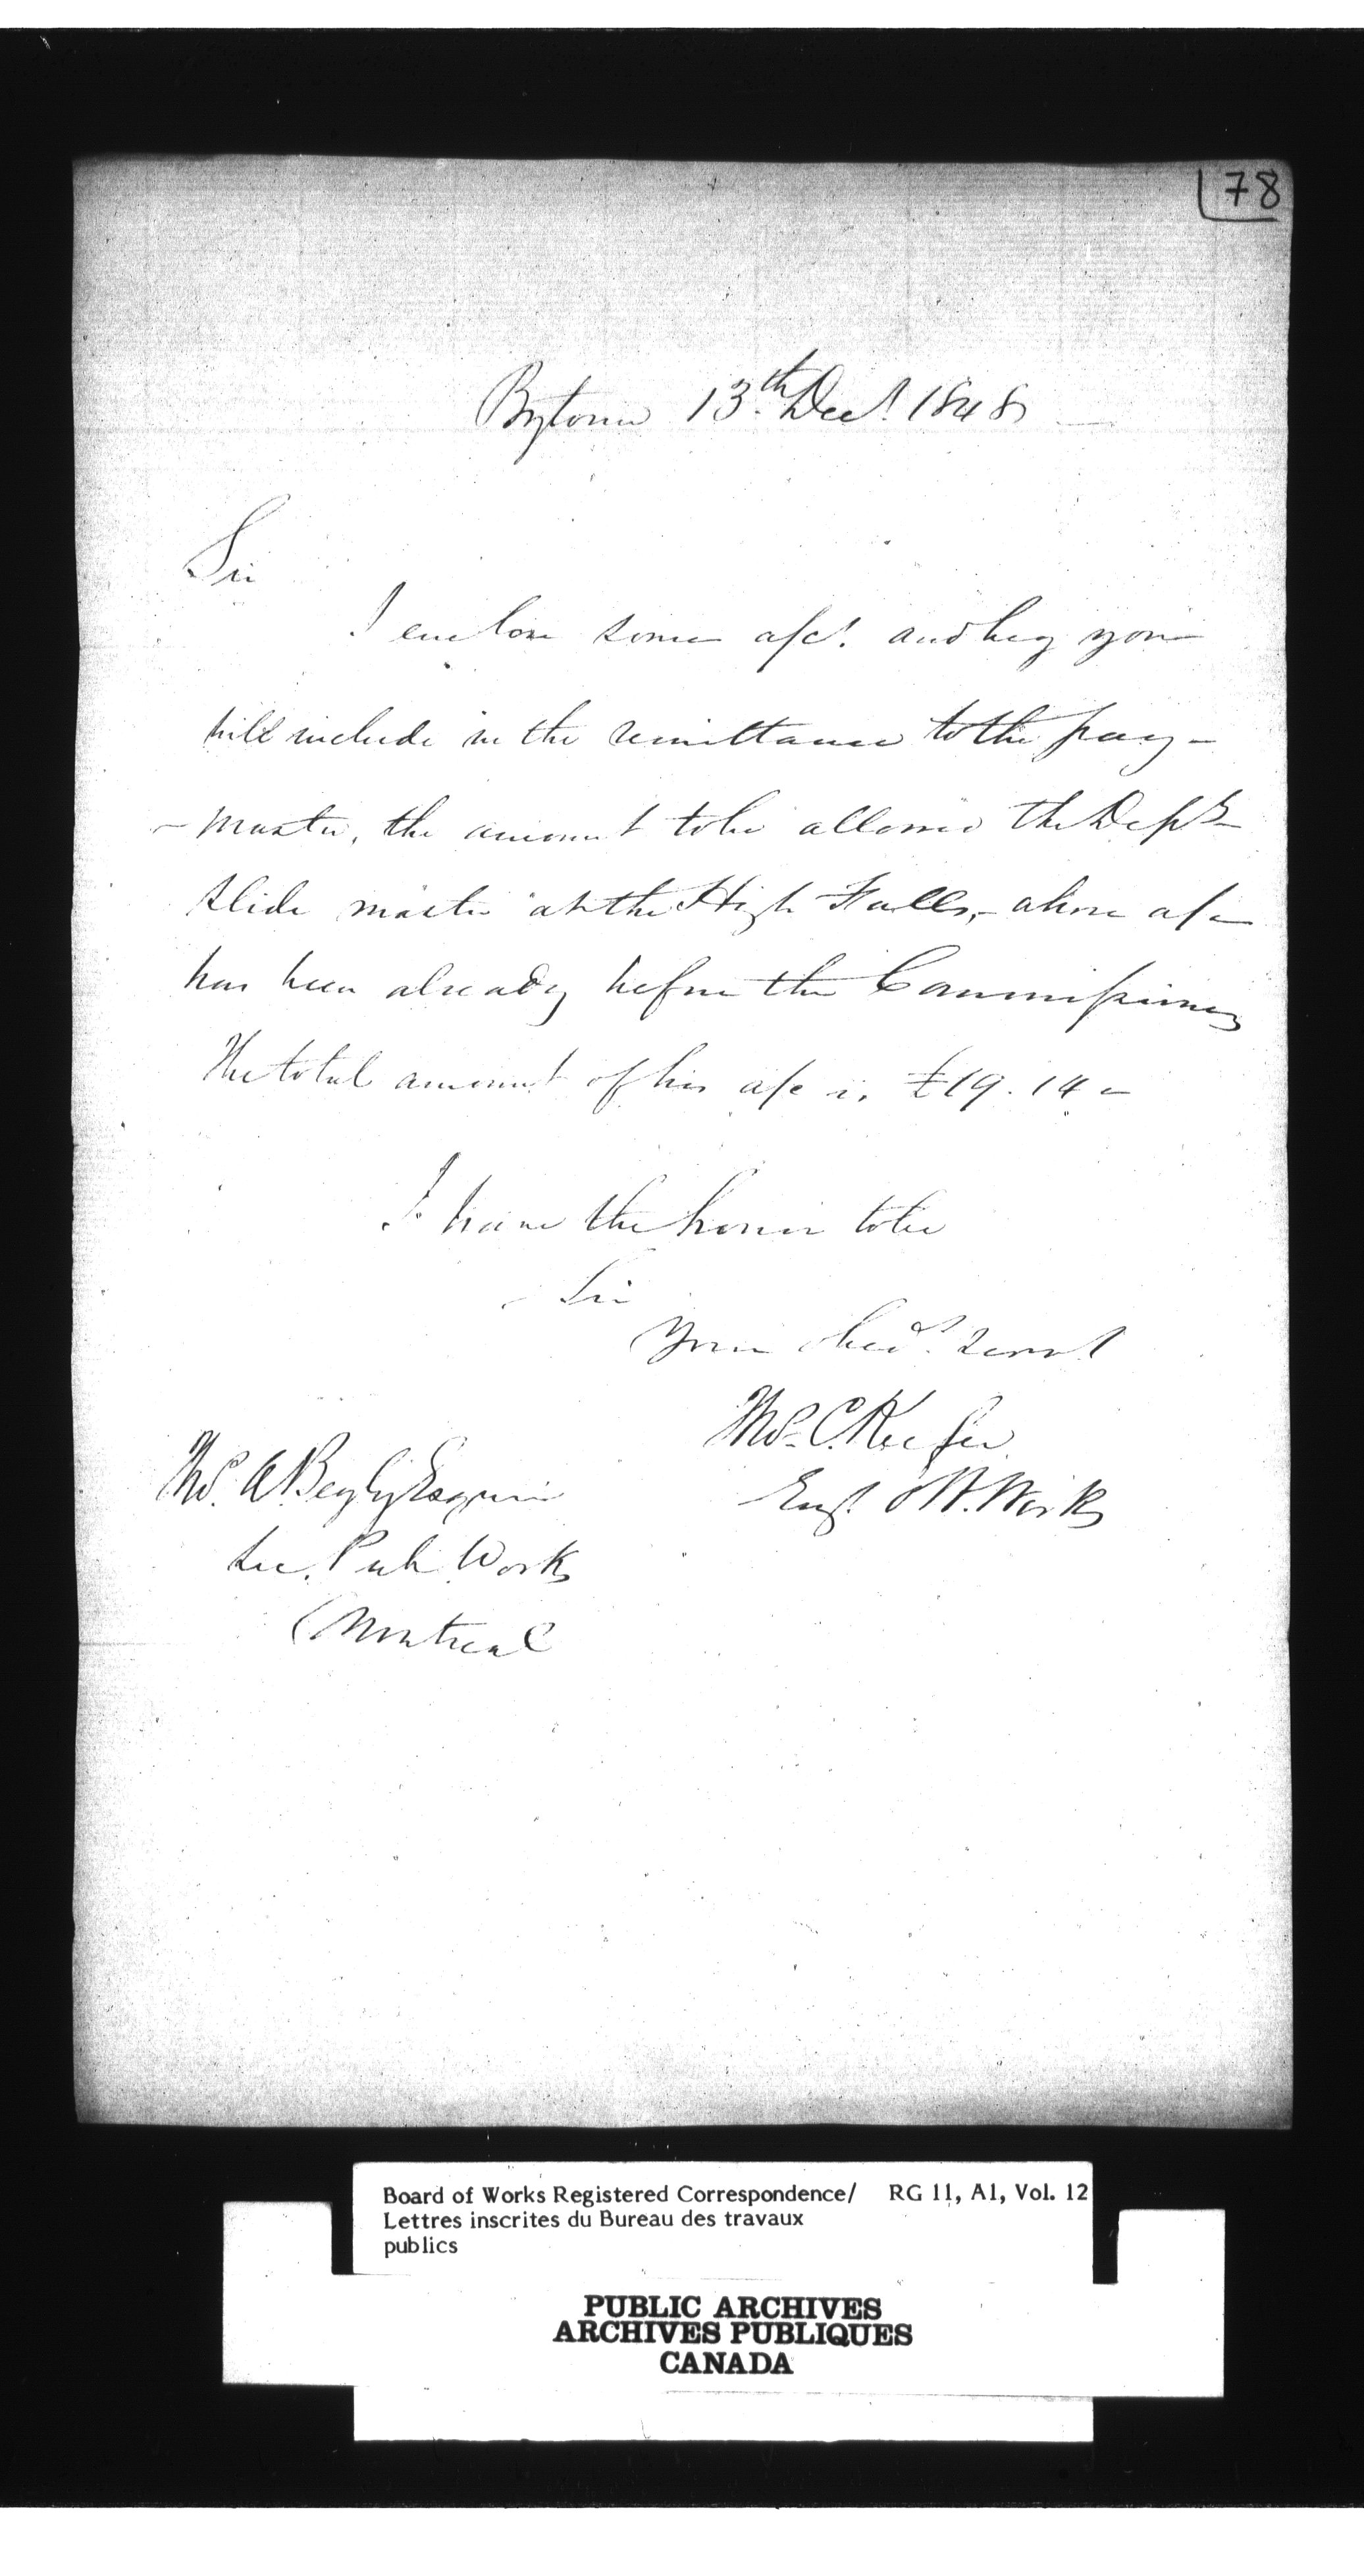 78
Bytown 13th Decr 1848
Sir
I enclose some a/cs. and beg you
will include in the remittance to the pay-
-master, the amount to be allowed the Depy
slide master at the High Falls,- whose a/c
has been already before the Commissioners
The total amount of his a/c is £19.14 -
I have the honor to be
Sir
Your obedt. servt
Thos. C. Keefer
Engr O W. Works
Thos. A. Begly Esquire
Sec. Pub Works
Montreal
Board of Works Registered Correspondence/ RG 11, A1, Vol. 12
Lettres inscrites du Bureau des travaux
publics
PUBLIC ARCHIVES
ARCHIVES PUBLIQUES
CANADA